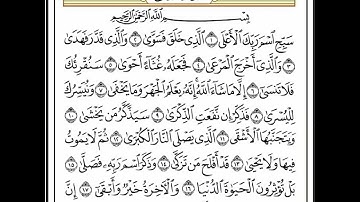 بِسْمِ اللَّهِ الرَّحْمَٰنِ الرَّحِيمِ
سَبِّحِ اسْمَ رَبِّكَ الْأَعْلَى ١ الَّذِي خَلَقَ فَسَوَّىٰ ٢ وَالَّذِي قَدَّرَ فَهَدَىٰ
٣ وَالَّذِي أَخْرَجَ الْمَرْعَىٰ ٤ فَجَعَلَهُ غُثَاءً أَحْوَىٰ ٥ سَنُقْرِئُكَ
فَلَا تَنسَىٰ ٦ إِلَّا مَا شَاءَ اللَّهُ إِنَّهُ يَعْلَمُ الْجَهْرَ وَمَا يَخْفَىٰ ٧ وَنُيَسِّرُكَ
لِلْيُسْرَىٰ ٨ فَذَكِّرْ إِن نَّفَعَتِ الذِّكْرَىٰ ٩ سَيَذَّكَّرُ مَن يَخْشَىٰ ١٠
وَيَتَجَنَّبُهَا الْأَشْقَى ١١ الَّذِي يَصْلَى النَّارَ الْكُبْرَىٰ ١٢ ثُمَّ لَا يَمُوتُ
فِيهَا وَلَا يَحْيَىٰ ١٣ قَدْ أَفْلَحَ مَن تَزَكَّىٰ ١٤ وَذَكَرَ اسْمَ رَبِّهِ فَصَلَّىٰ ١٥
بَلْ تُؤْثِرُونَ الْحَيَوٰةَ الدُّنْيَا ١٦ وَالْآخِرَةُ خَيْرٌ وَأَبْقَىٰ ١٧ إِنَّ